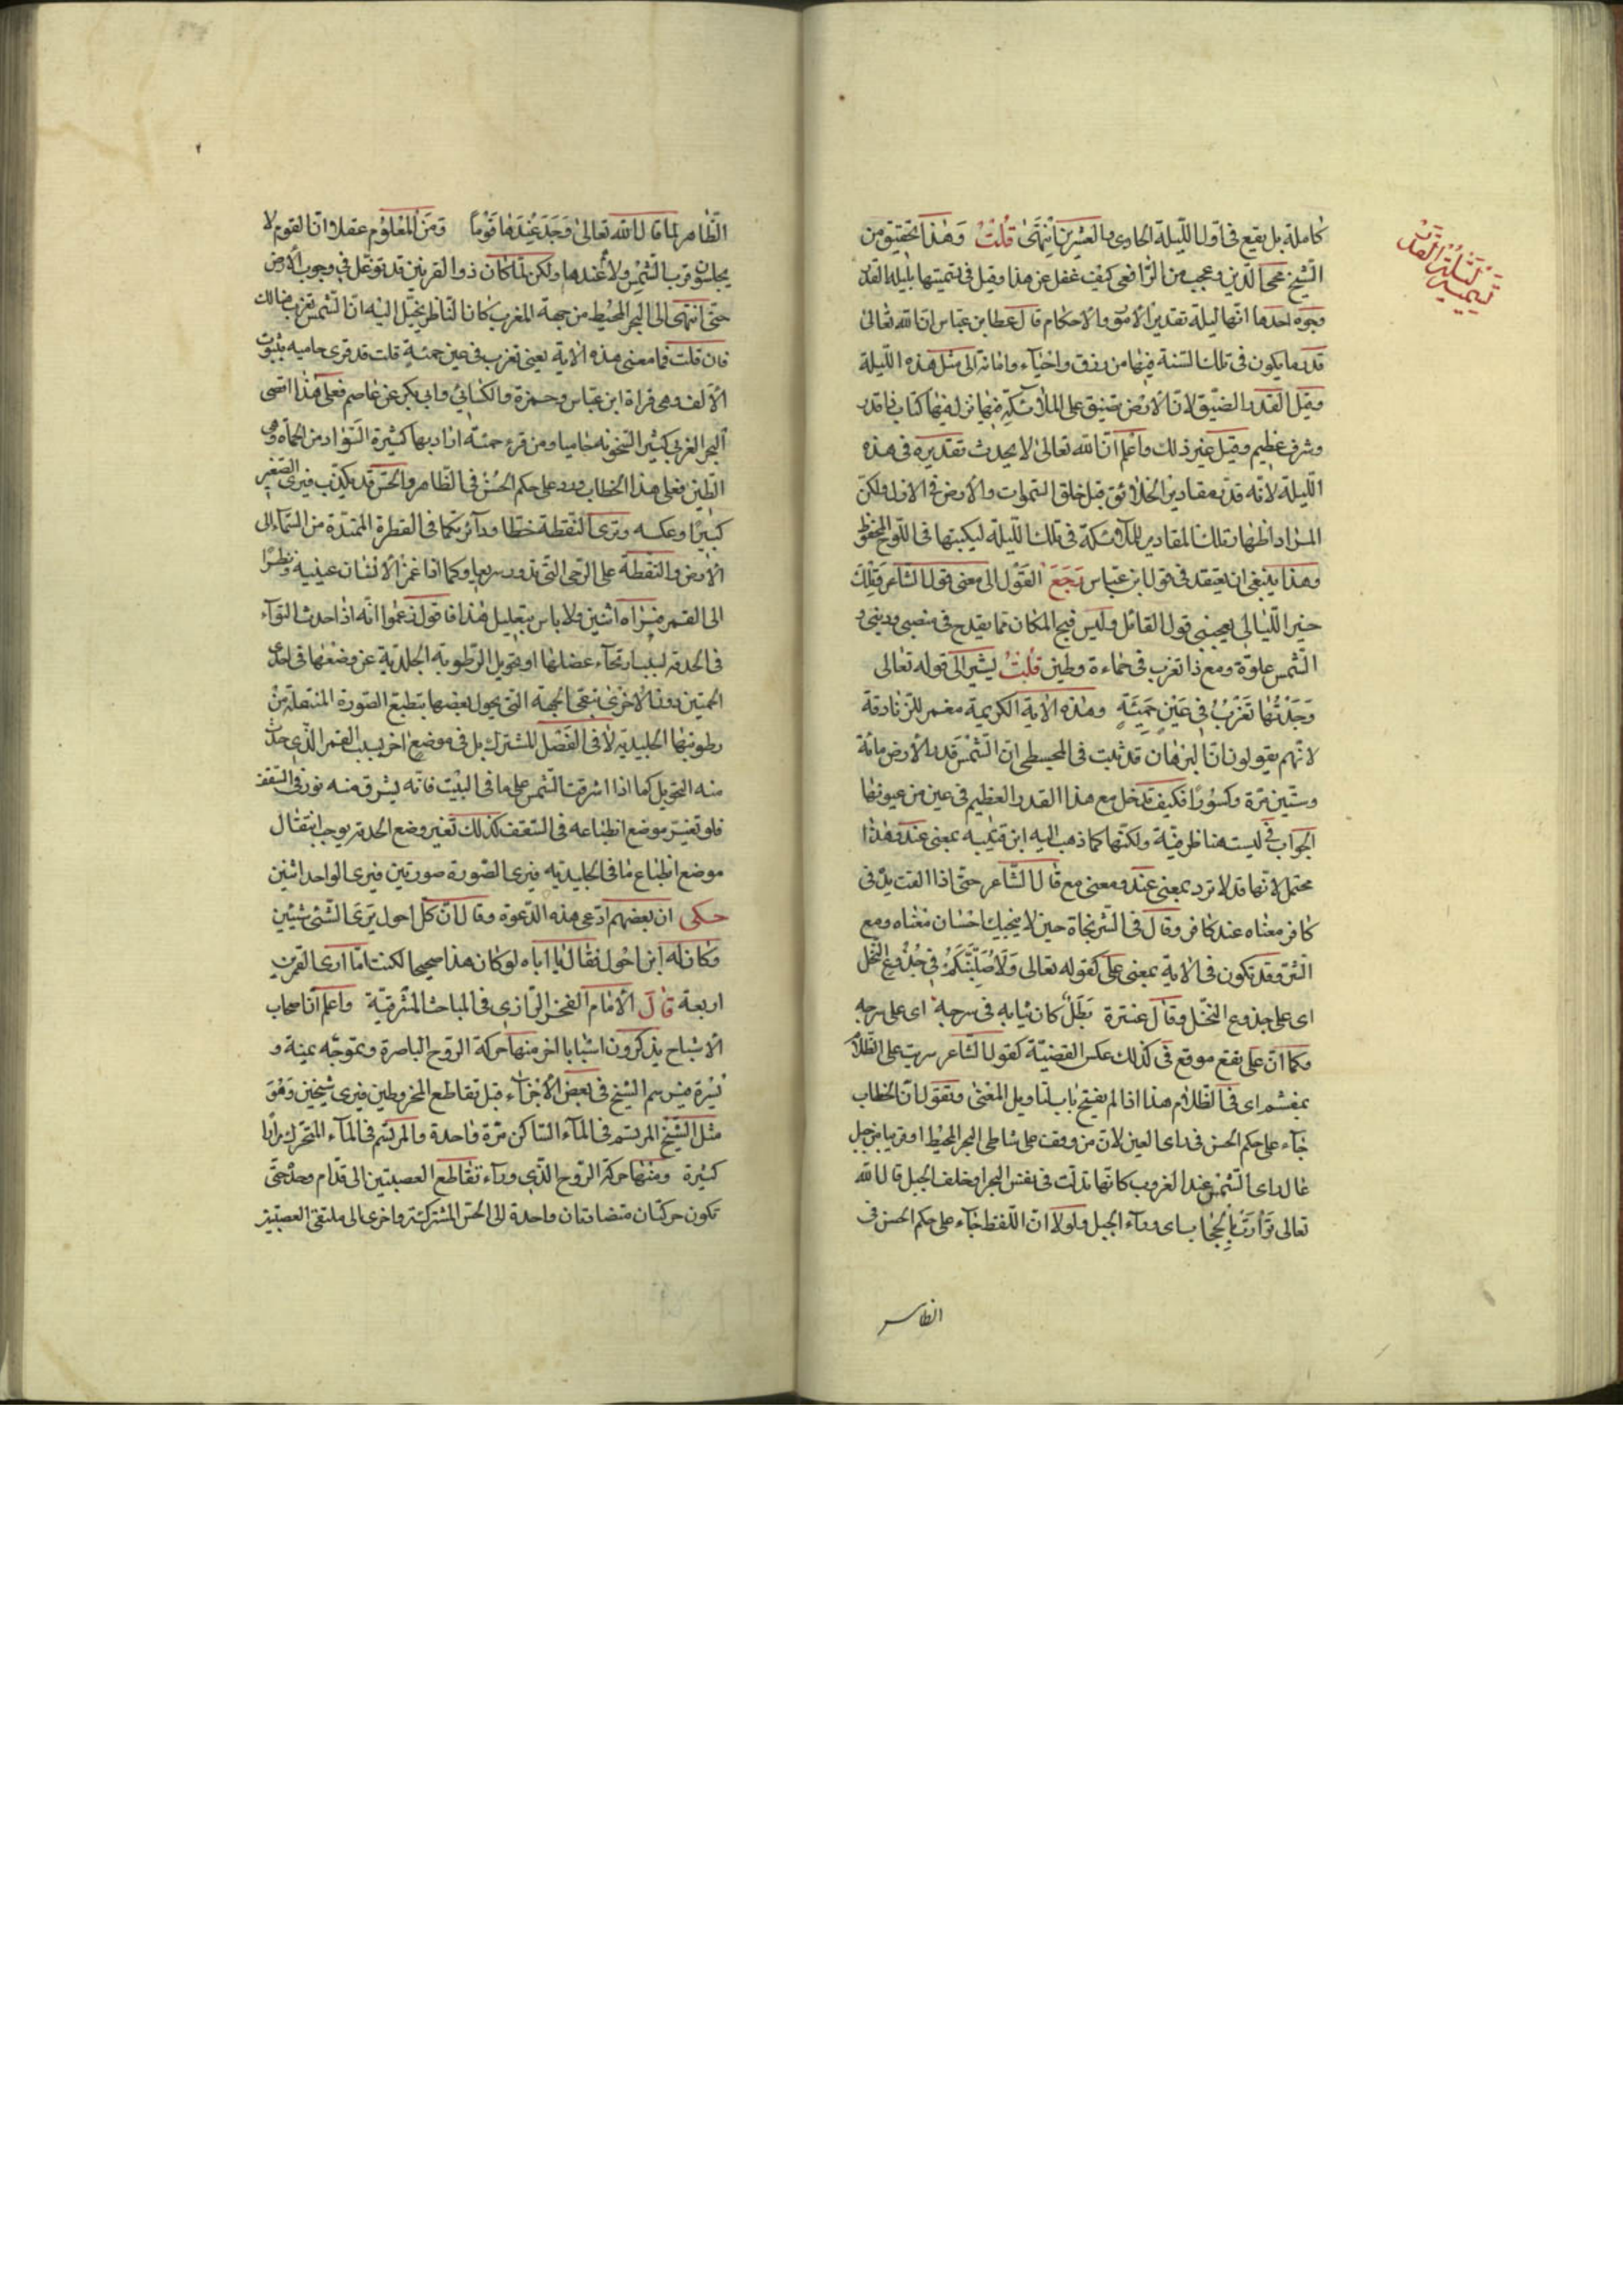 تسمية ليلة القدر
كاملة بل يقع في اول الليلة الحادى والعشرين انتهى قلت وهذا تحقيق من
الشيخ محى الدين وعجب من الرافعى كيف غفل عن هذا وقيل في تسميتها بليلة القدر
وجوه احدها انها ليلة تقدير الامور والاحكام قال عطا بن عباس ان الله تعالى
قدر ما يكون فى تلك السنة فيها من رزق واحياء واماتة الى مثل هذه الليلة
وقيل القدر الضيق لان الارض تضيق على الملائكة فيها نزل فيها كتاب ذا قدر
وشرف عظيم وقيل غير ذلك واعلم ان الله تعالى لا يحدث تقديره فى هذه
الليلة لانه قدر مقادير الخلائق قبل خلق السموات والارض فى الازل ولكن
المراد اظهار تلك المقادير للملائكة فى تلك الليلة ليكتبها فى اللوح المحفوظ
وهذا ينبغى ان يعتقد فى قول ابن عباس رجع القول الى معنى قول الشاعر وتلك
خير الليالى يعجبنى قول القائل وليس قبح المكان مما يقدح فى منصبى ودينى و
الشمس علوة ومع ذا تغرب فى حماءة وطين قلت يشير الى قوله تعالى
وجدتها تغرب فى عين حمئة وهذه الاية الكريمة مغمر للزنادقة
لانهم يقولون ان البرهان قد ثبت فى المجسطى ان الشمس قدر الارض مائة
وستين مرة وكسورا فكيف تدخل مع هذا القدر العظيم فى عين من عيونها
الجواب فى ليست هنا ظرفية ولكنها كما ذهب اليه ابن قتيبة بمعنى عند وهذا
محتمل لانها قد لا ترد بمعنى عند ومعنى مع قال الشاعر حتى اذا القت يدا فى
كافر معناه عند كافر وقال فى الشر نجاة حين لا ينجيك احسان معناه ومع
الشر وقد تكون فى الاية بمعنى على كقوله تعالى ولاصلبنكم فى جذوع النخل
اى على جذوع النخل وقال عنترة بطل كان ثيابه فى سرحة اى على سرحة
وكما ان على يقع موقع فى كذلك عكس القضية كقول الشاعر سريت على الظلام
بمغشم اى فى الظلام هذا اذا لم يفتح باب لتاويل المعنى ونقول ان الخطاب
جاء على حكم الحس فى راى العين لان من وقف على شاطى البحر المحيط او قريبا من جبل
عال راى الشمس عند الغروب كانها تدلت فى نفس البحر او خلف الجبل قال الله
تعالى توارت بالحجاب اى وراء الجبل ولولا ان اللفظ جاء على حكم الحس فى
الظاهر
الظاهر لما قال الله تعالى ووجد عندها قوما ومن المعلوم عقلا ان القوم لا
يجلسون قرب الشمس ولا عندها ولكن لما كان ذوا القرنين قد توغل فى وجوب الارض
حتى انتهى الى البحر المحيط من جهة المغرب كان الناظر يخيل اليه ان الشمس تغرب هنالك
فان قلت فما معنى هذه الاية يعنى تغرب فى عين حمئة قلت قد قرى حاميه بثبوت
الالف وهى قراة ابن عباس وحمزة والكسائى وابى بكر عن عاصم فعلى هذا اضحى
البحر الغربى كثير السخونه حاميا ومن قرء حمئة اراد بها كثيرة السواد من الحمأه وهى
الطين فعلى هذا الخطاب ورد على حكم الحس فى الظاهر والحس قد يكذب فيرى الصغير
كبيرا وعكسه وترى النقطة خطا ودائرة كما فى القطرة الممتدة من السماء الى
الارض والنقطة على الرحى التى تدور سريعا وكما اذا غمز الانسان عينيه ونظر
الى القمر فيراه اثنين ولا باس بتعليل هذا فاقول زعموا انه اذا حدث التواء
فى الحدقة لسبب ارتخاء عضلها او تحويل الرطوبة الجلدية عن وضعها فى احدى
الجهتين دون الاخرى تبقى الجهة التى يحول بعضها بتطبع الصورة المنتقلة من
رطوبتها الجليدية لا فى الفصل المشترك بل فى موضع اخر بسبب القمر الذى حدث
منه التحويل كما اذا اشرقت الشمس على ما فى البيت فانه يشرق منه نور فى السقف
فلو تغير موضع انطباعه فى السقف كذلك تغير وضع الحدقة يوجب انتقال
موضع انطباع ما فى الجليديه فيرى الصورة صورتين فيرى الواحد اثنين
حكى ان بعضهم ادعى هذه الدعوة وقال ان كل احول يرى الشئ شيئين
وكان له ابن احول فقال يا اباه لو كان هذا صحيحا لكنت انا ارى القمرين
اربعة قال الامام الفخر الرازى فى المباحث المشرقية واعلم ان اصحاب
الاشباح يذكرون اسبابا اخر منها حركة الروح الباصرة وتموجه يمنة و
يسرة فيرتسم الشبح فى بعض الاجزاء قبل تقاطع المخروطين فيرى شبحين وهو
مثل الشبح المرتسم فى الماء الساكن مرة واحدة والمرتسم فى الماء المتحرك مرارا
كثيرة ومنها حركة الروح الذى وراء تقاطع العصبتين الى قدام وخلف حتى
تكون حركتان متضادتان واحدة الى الحس المشترك واخرى الى ملتقى العصبتين